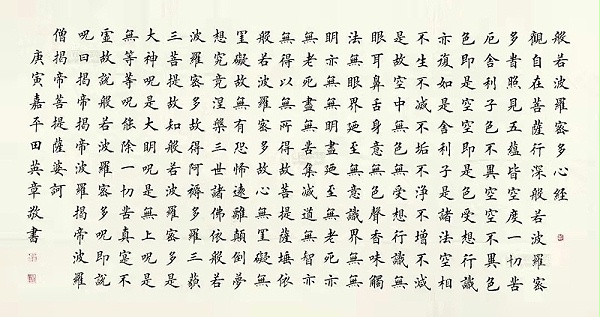 般若波羅密多心經
觀自在菩薩行深般若波羅密
多時照見五蘊皆空度一切苦
厄舍利子色不異空空不異色
色即是空空即是色受想行識
亦復如是舍利子是諸法空相
不生不滅不垢不淨不增不減
是故空中無色無受想行識無
眼耳鼻舌身意無色聲香味觸
法無眼界廼至無意識界無無
明亦無無明盡廼至無老死亦
無老死盡無苦集滅道無智亦
無得以無所得故菩提薩埵依
般若波羅密多故心無罣礙無
罣礙故無有恐怖遠離顛倒夢
想究竟涅槃三世諸佛依般若
波羅密多故得阿耨多羅三藐
三菩提故知般若波羅密多是
大神呪是大明呪是無上呪是
無等等呪能除一切苦真實不
虛故說般若波羅密多呪即說
呪曰揭帝揭帝波羅揭帝波羅
僧揭帝菩提薩婆訶
庚寅嘉平田英章敬書